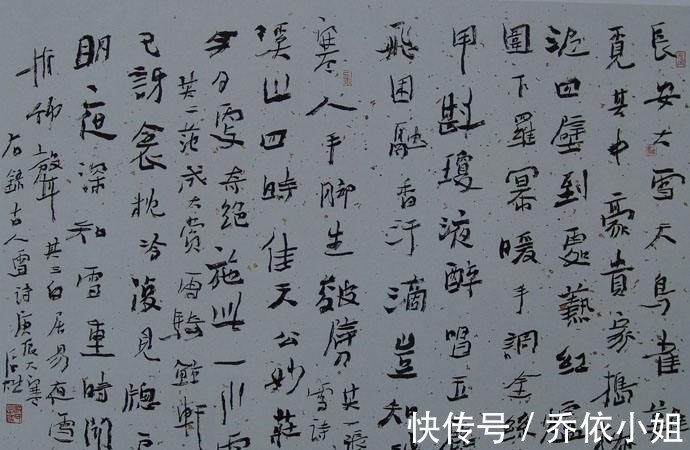 長安大雪天鳥雀
覓其中豪貴家搗椒
泥四壁到處爇紅爐
圍下羅冪暖手調金絲
甲斟瓊液醉唱玉
飛困融香汗滴豈知
寒人手腳生皴劈 其一張
雪詩
溪山四時佳天公妙莊
今日更奇絕施此一川雪
其二范成大賞雪騎鯨軒
已訝衾枕冷復見窗戶
明夜深知雪重時聞
折竹聲 其三白居易夜雪
右錄古人雪詩庚辰大寒
快传号 / 乔依小姐